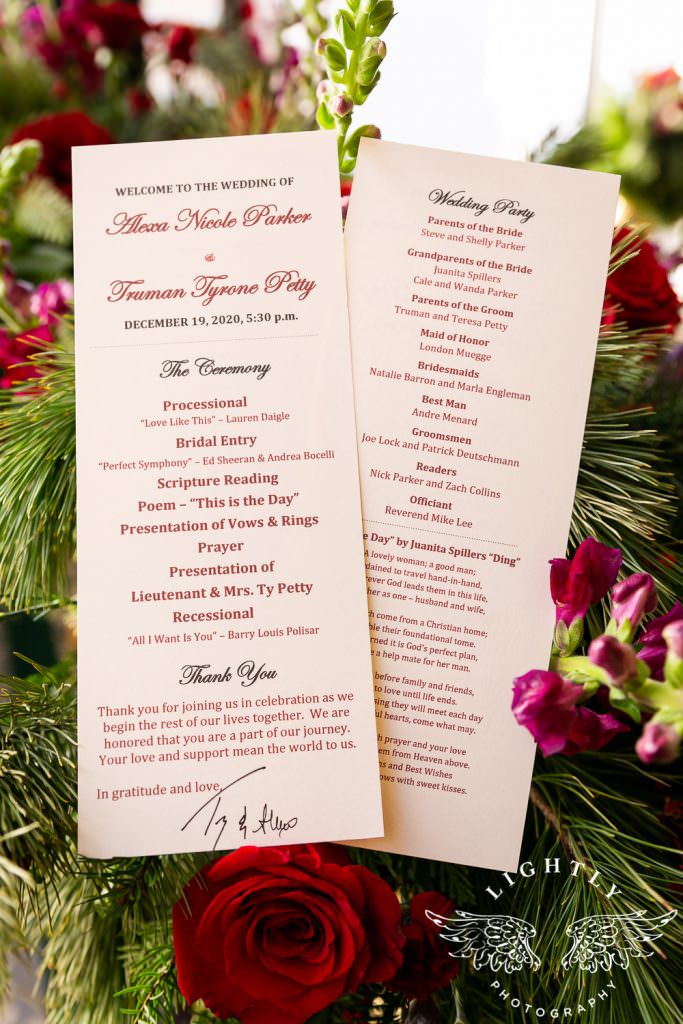 WELCOME TO THE WEDDING OF
Alexa Nicole Parker
&
Truman Tyrone Petty
DECEMBER 19, 2020, 5:30 p.m.
The Ceremony
Processional
“Love Like This” – Lauren Daigle
Bridal Entry
“Perfect Symphony” – Ed Sheeran & Andrea Bocelli
Scripture Reading
Poem – “This is the Day”
Presentation of Vows & Rings
Prayer
Presentation of
Lieutenant & Mrs. Ty Petty
Recessional
“All I Want Is You” – Barry Louis Polisar
Thank You
Thank you for joining us in celebration as we
begin the rest of our lives together. We are
honored that you are a part of our journey.
Your love and support mean the world to us.
In gratitude and love,
Ty & Alexa
Wedding Party
Parents of the Bride
Steve and Shelly Parker
Grandparents of the Bride
Juanita Spillers
Cale and Wanda Parker
Parents of the Groom
Truman and Teresa Petty
Maid of Honor
London Muegge
Bridesmaids
Natalie Barron and Marla Engleman
Best Man
Andre Menard
Groomsmen
Joe Lock and Patrick Deutschmann
Readers
Nick Parker and Zach Collins
Officiant
Reverend Mike Lee
Day” by Juanita Spillers “Ding”
A lovely woman; a good man;
to travel hand-in-hand,
God leads them in this life,
as one – husband and wife,
come from a Christian home;
their foundational tome.
it is God’s perfect plan,
a help mate for her man.
before family and friends,
to love until life ends.
they will meet each day
hearts, come what may.
prayer and your love
from Heaven above.
and Best Wishes
with sweet kisses.
LIGHTLY
PHOTOGRAPHY